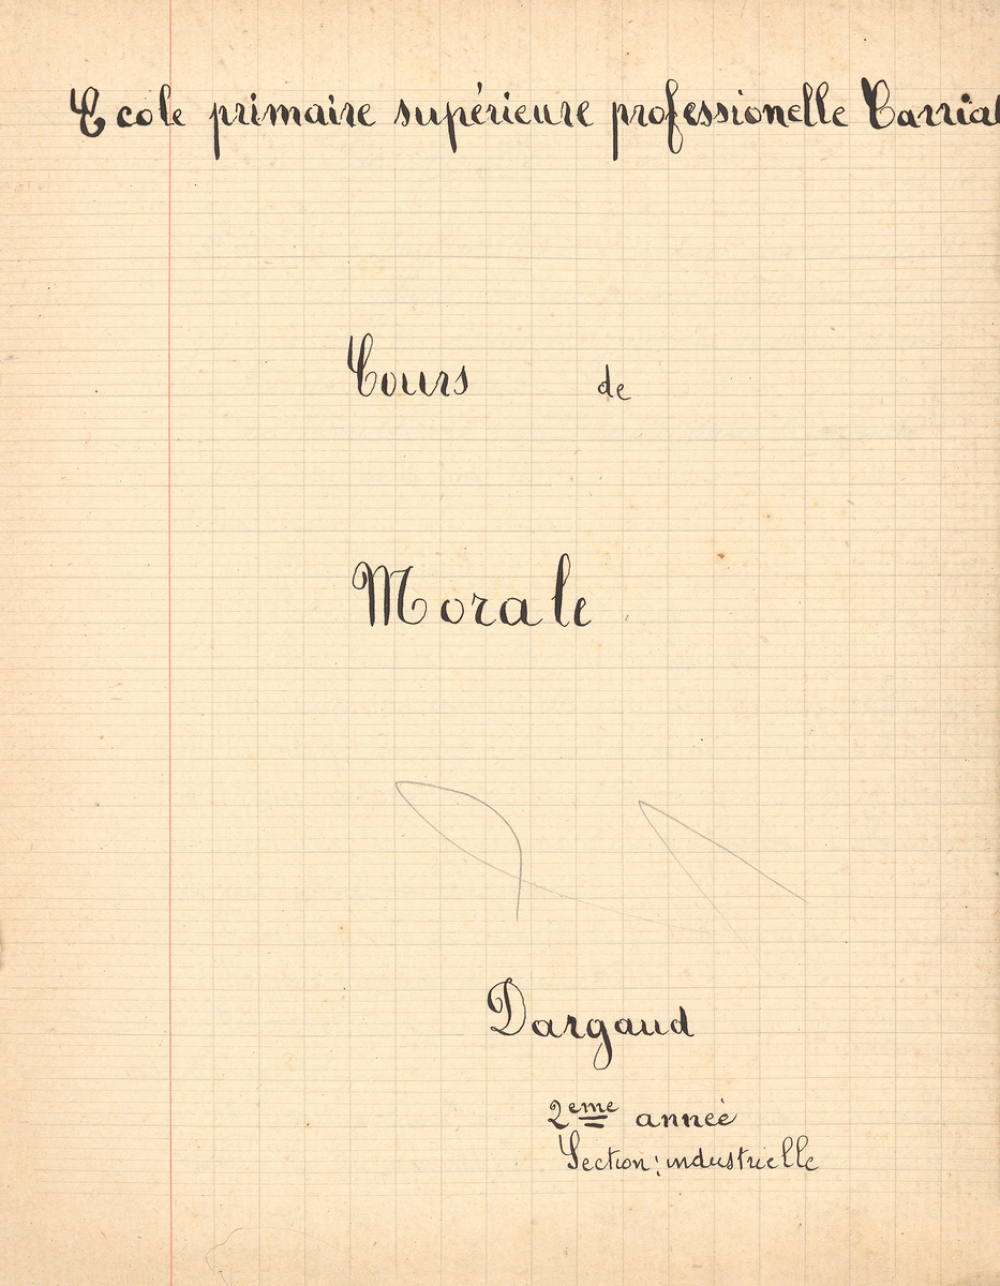 Ecole primaire supérieure professionelle Carriat
Cours de
Morale
Dargaud
2eme année
Section: industrielle